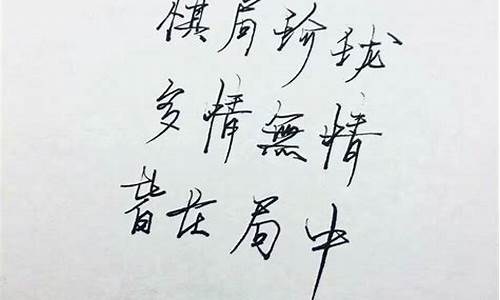 棋局珍珑
多情無情
皆在局中